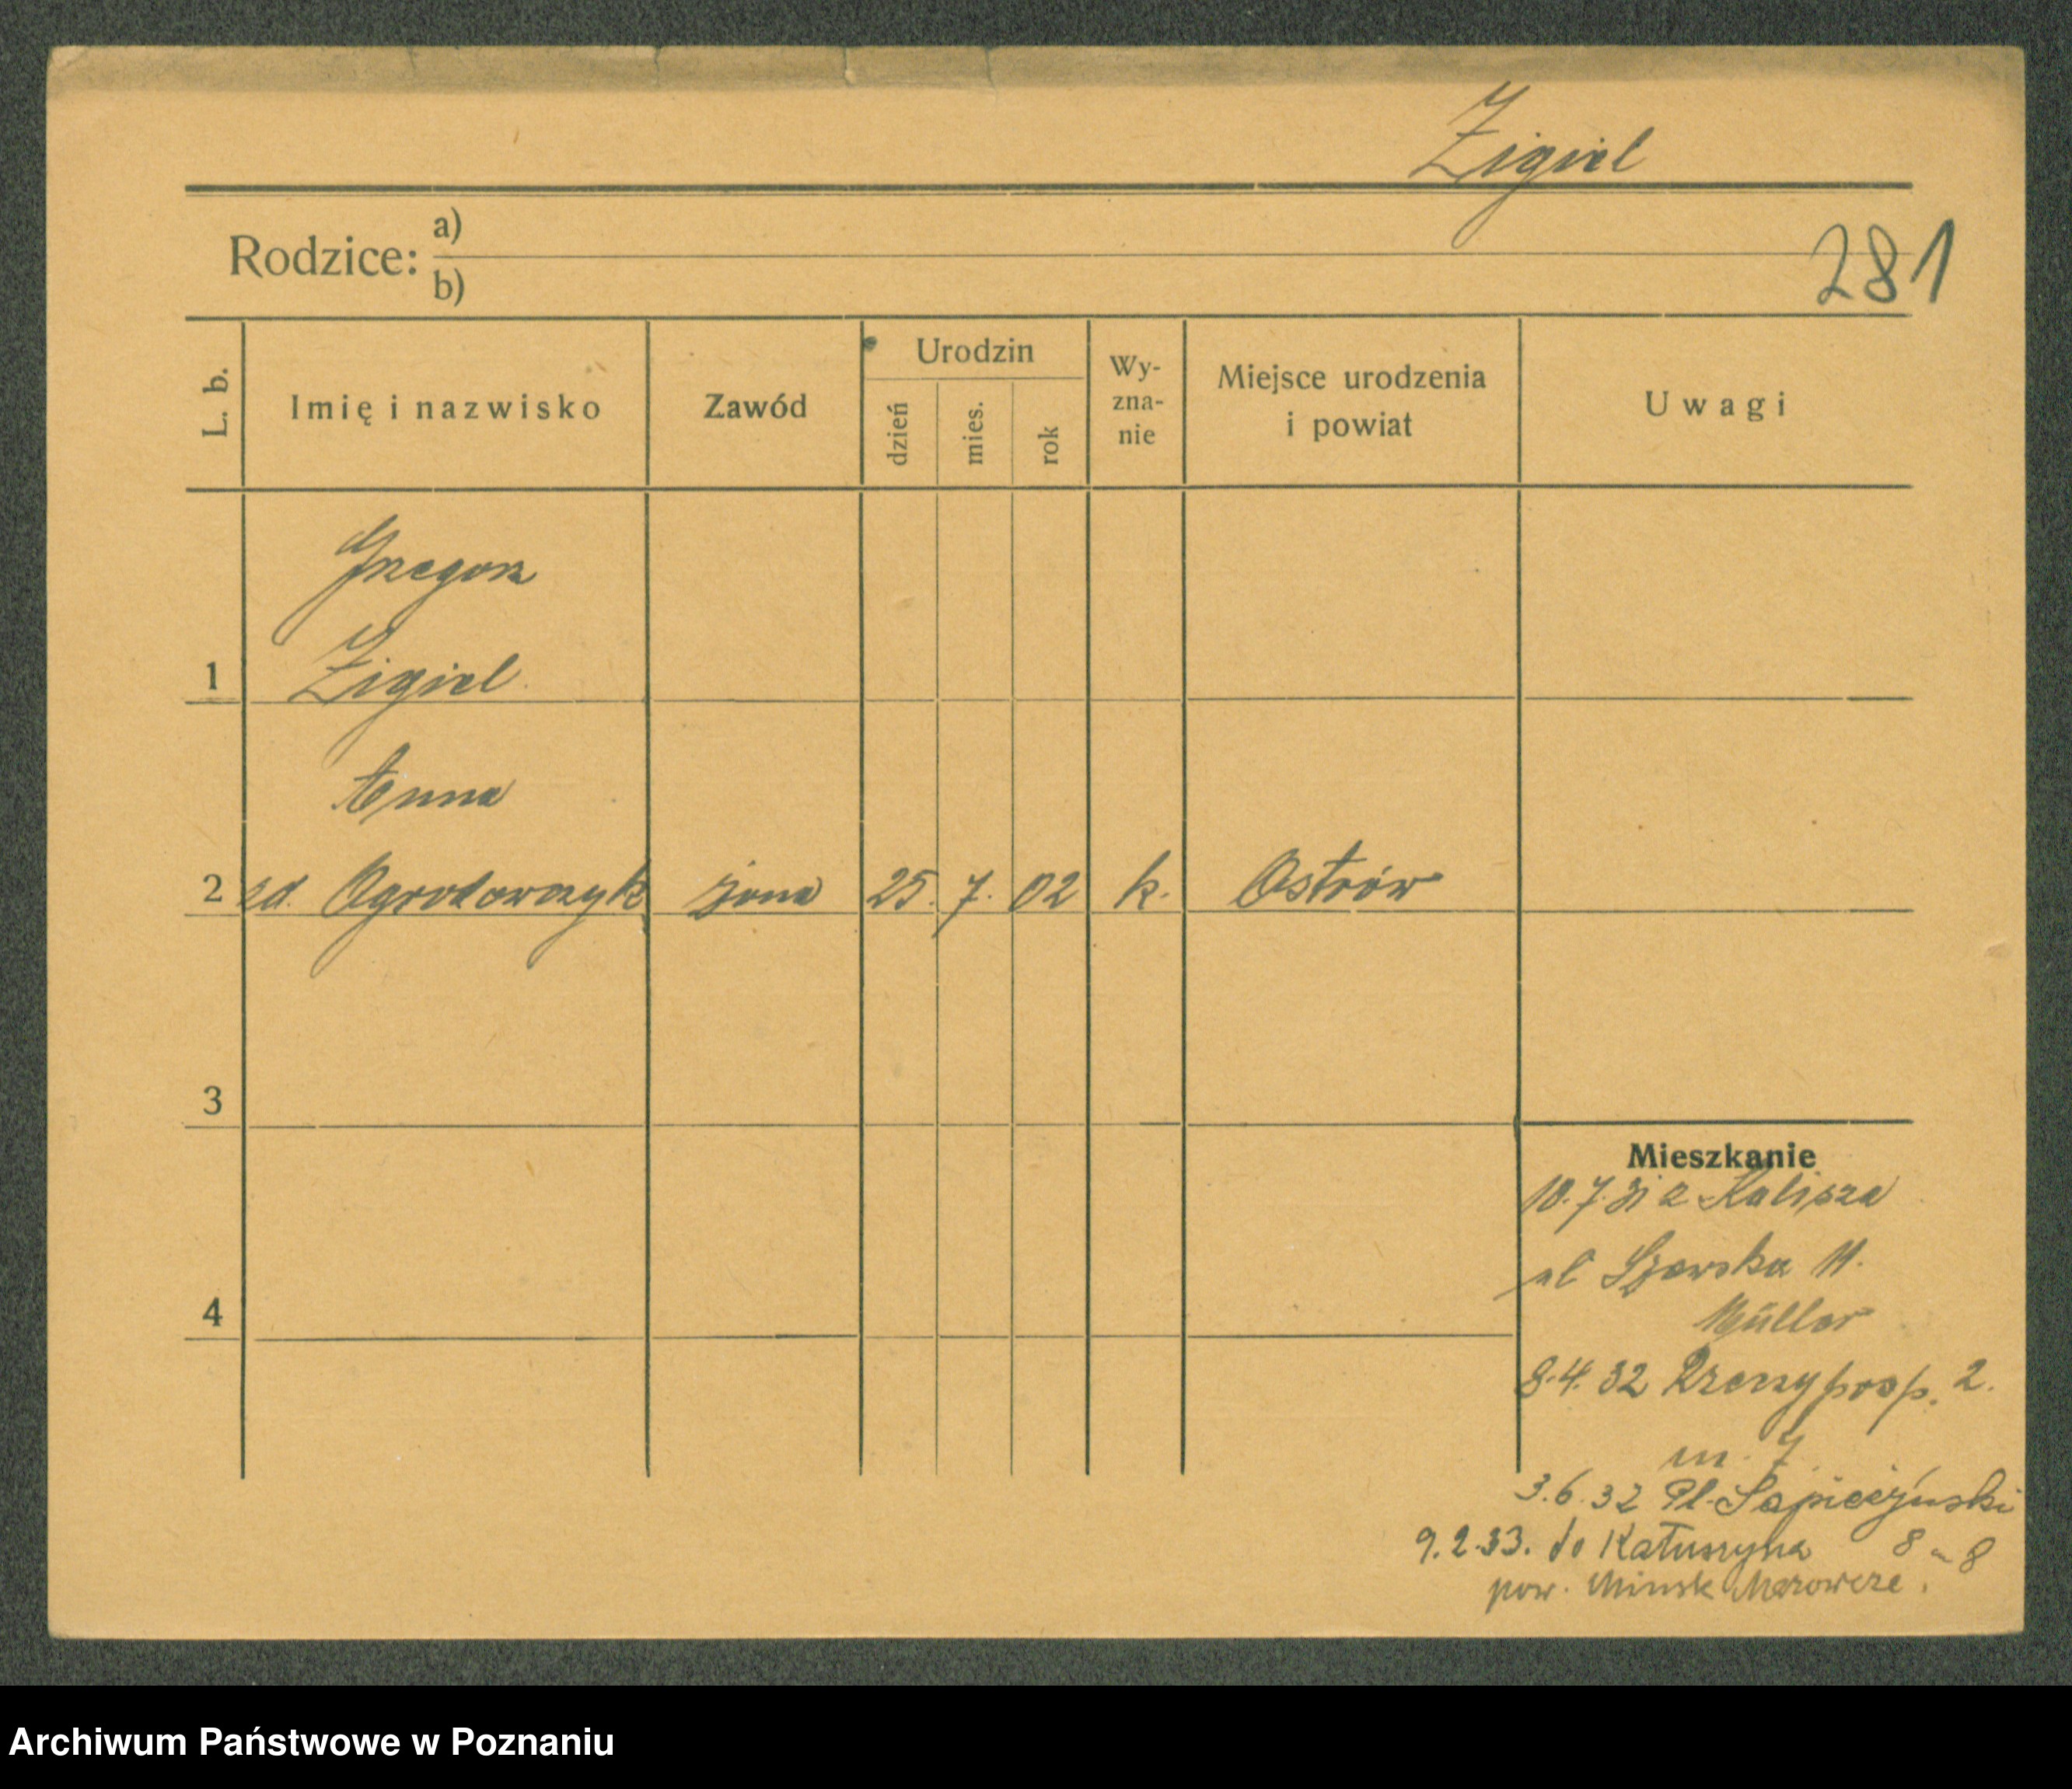 Zigiel
Rodzice: a)
b)
281
L. b. Imię i nazwisko Zawód Urodzin dzień mies. rok Wy-zna-nie Miejsce urodzenia i powiat Uwagi
Grzegorz
1 Zigiel
Anna
2 zd. Ogrodowczyk żona 25. 7. 02 k. Ostrów
3
Mieszkanie
10.7.31 z Kalisza
ul Szewska 11.
Müller
4
8.4.32 Rzeczyposp. 2.
m. 7
3.6.32 Pl. Sapieżyński
8 m 8
9.2.33. do Kałuszyna
pow. Minsk Mazowcze.
Archiwum Państwowe w Poznaniu